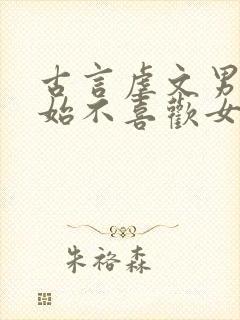 古言虐文男
始不喜歡女
朱袼森